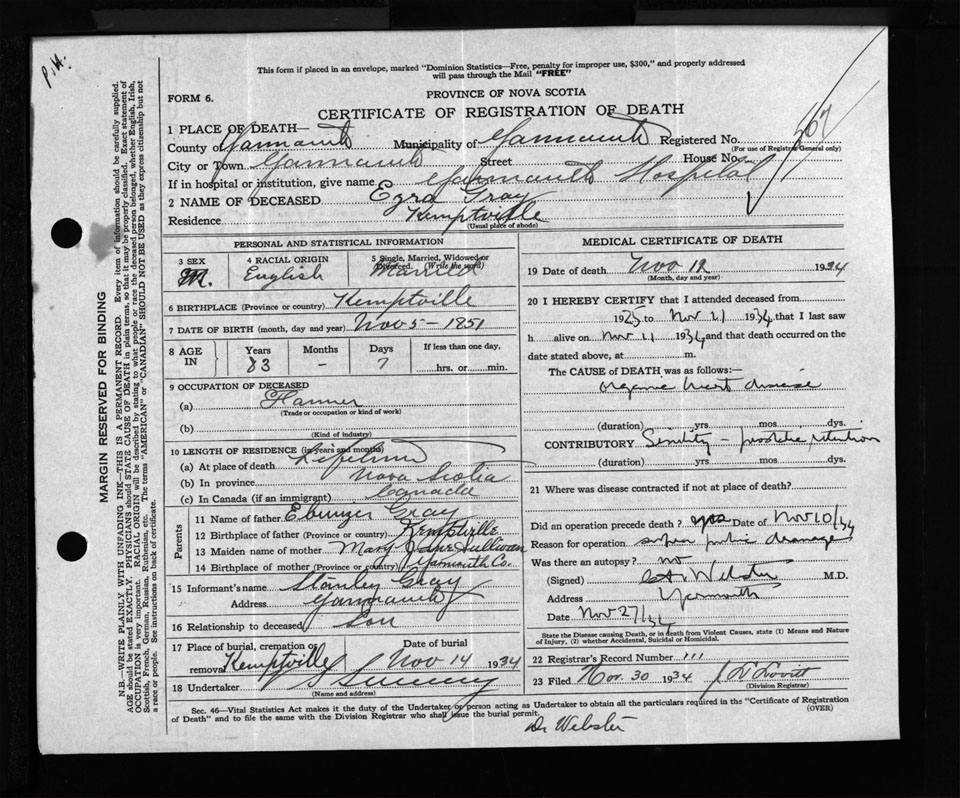 P.H.
This form if placed in an envelope, marked "Dominion Statistics—Free, penalty for improper use, $300," and properly addressed
will pass through the Mail "FREE"
FORM 6.
PROVINCE OF NOVA SCOTIA
CERTIFICATE OF REGISTRATION OF DEATH
567
1 PLACE OF DEATH—
County of Yarmouth Municipality of Yarmouth Registered No.
(For use of Registrar General only)
City or Town Yarmouth Street House No.
If in hospital or institution, give name Yarmouth Hospital
2 NAME OF DECEASED Ezra Gray
Residence Kemptville
(Usual place of abode)
PERSONAL AND STATISTICAL INFORMATION
3 SEX M. 4 RACIAL ORIGIN English 5 Single, Married, Widowed or Divorced. (Write the word) Married
6 BIRTHPLACE (Province or country) Kemptville
7 DATE OF BIRTH (month, day and year) Nov 5 - 1851
8 AGE IN Years 83 Months - Days 7 If less than one day, hrs. or min.
9 OCCUPATION OF DECEASED
(a) Farmer
(Trade or occupation or kind of work)
(b)
(Kind of industry)
10 LENGTH OF RESIDENCE (in years and months)
(a) At place of death Lifetime
(b) In province Nova Scotia
(c) In Canada (if an immigrant) Canada
Parents
11 Name of father Ebenezer Gray
12 Birthplace of father (Province or country) Kemptville
13 Maiden name of mother Mary Jane Sullivan
14 Birthplace of mother (Province or country) Yarmouth Co.
15 Informant's name Stanley Gray
Address Yarmouth
16 Relationship to deceased Son
17 Place of burial, cremation or removal Kemptville Date of burial Nov 14 1934
18 Undertaker
(Name and address)
MEDICAL CERTIFICATE OF DEATH
19 Date of death Nov 12 1934
(Month, day and year)
20 I HEREBY CERTIFY that I attended deceased from
1925 to Nov 11 1934, that I last saw
h alive on Nov 11 1934 and that death occurred on the
date stated above, at m.
The CAUSE of DEATH was as follows:—
Organic heart disease
(duration) yrs mos. dys.
CONTRIBUTORY Senility - prostatic retention
(duration) yrs mos dys.
21 Where was disease contracted if not at place of death?
Did an operation precede death? yes Date of Nov 10/34
Reason for operation supra pubic drainage
Was there an autopsy? no
(Signed) Webster M.D.
Address Yarmouth
Date Nov 27/34
State the Disease causing Death, or in death from Violent Causes, state (1) Means and Nature
of Injury, (2) whether Accidental, Suicidal or Homicidal.
22 Registrar's Record Number 111
23 Filed Nov. 30 1934
(Division Registrar)
Sec. 46—Vital Statistics Act makes it the duty of the Undertaker or person acting as Undertaker to obtain all the particulars required in the "Certificate of Registration
of Death" and to file the same with the Division Registrar who shall issue the burial permit. (OVER)
Dr Webster
MARGIN RESERVED FOR BINDING
N.B.—WRITE PLAINLY WITH UNFADING INK—THIS IS A PERMANENT RECORD. Every item of information should be carefully supplied.
AGE should be stated EXACTLY. PHYSICIANS should STATE CAUSE OF DEATH in plain terms, so that it may be properly classified. Exact statement of
OCCUPATION is very important. RACIAL ORIGIN will be described by stating to what people or race the deceased person belonged, whether English, Irish,
Scottish, French, German, Russian, Ruthenian, etc. The terms "AMERICAN" or "CANADIAN" SHOULD NOT BE USED as they express citizenship but not
a race or people. See instructions on back of certificate.